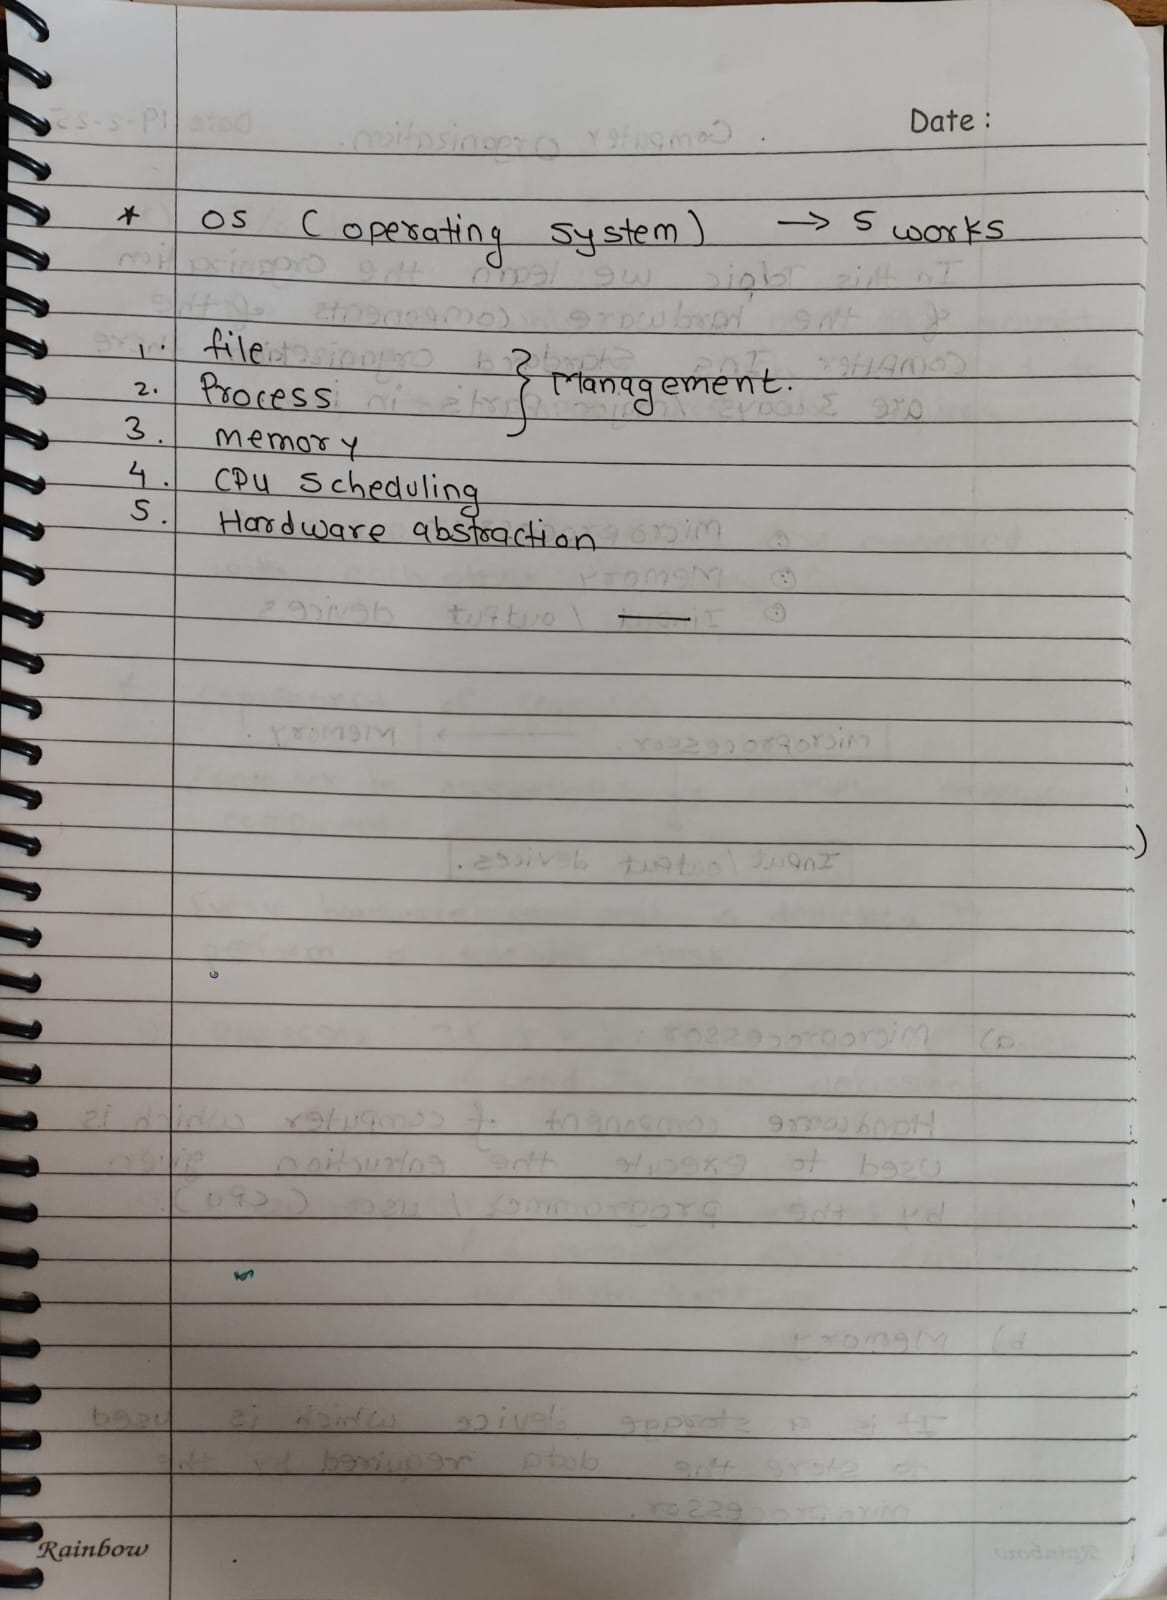 Date :
* OS (operating system) → 5 works
1. file
2. Process } Management.
3. memory
4. CPU Scheduling
5. Hardware abstraction
Rainbow